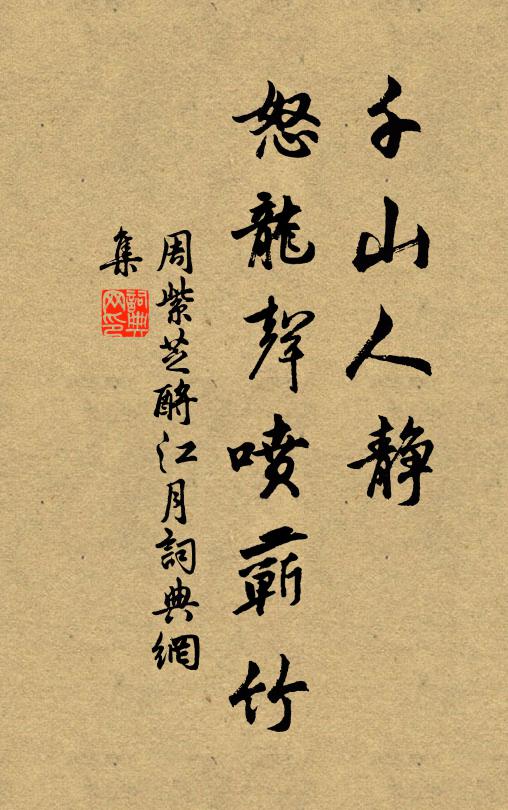 千山人静
怒龍聲噴蘄竹
周紫芝酹江月詞典網
集
詞典
网印